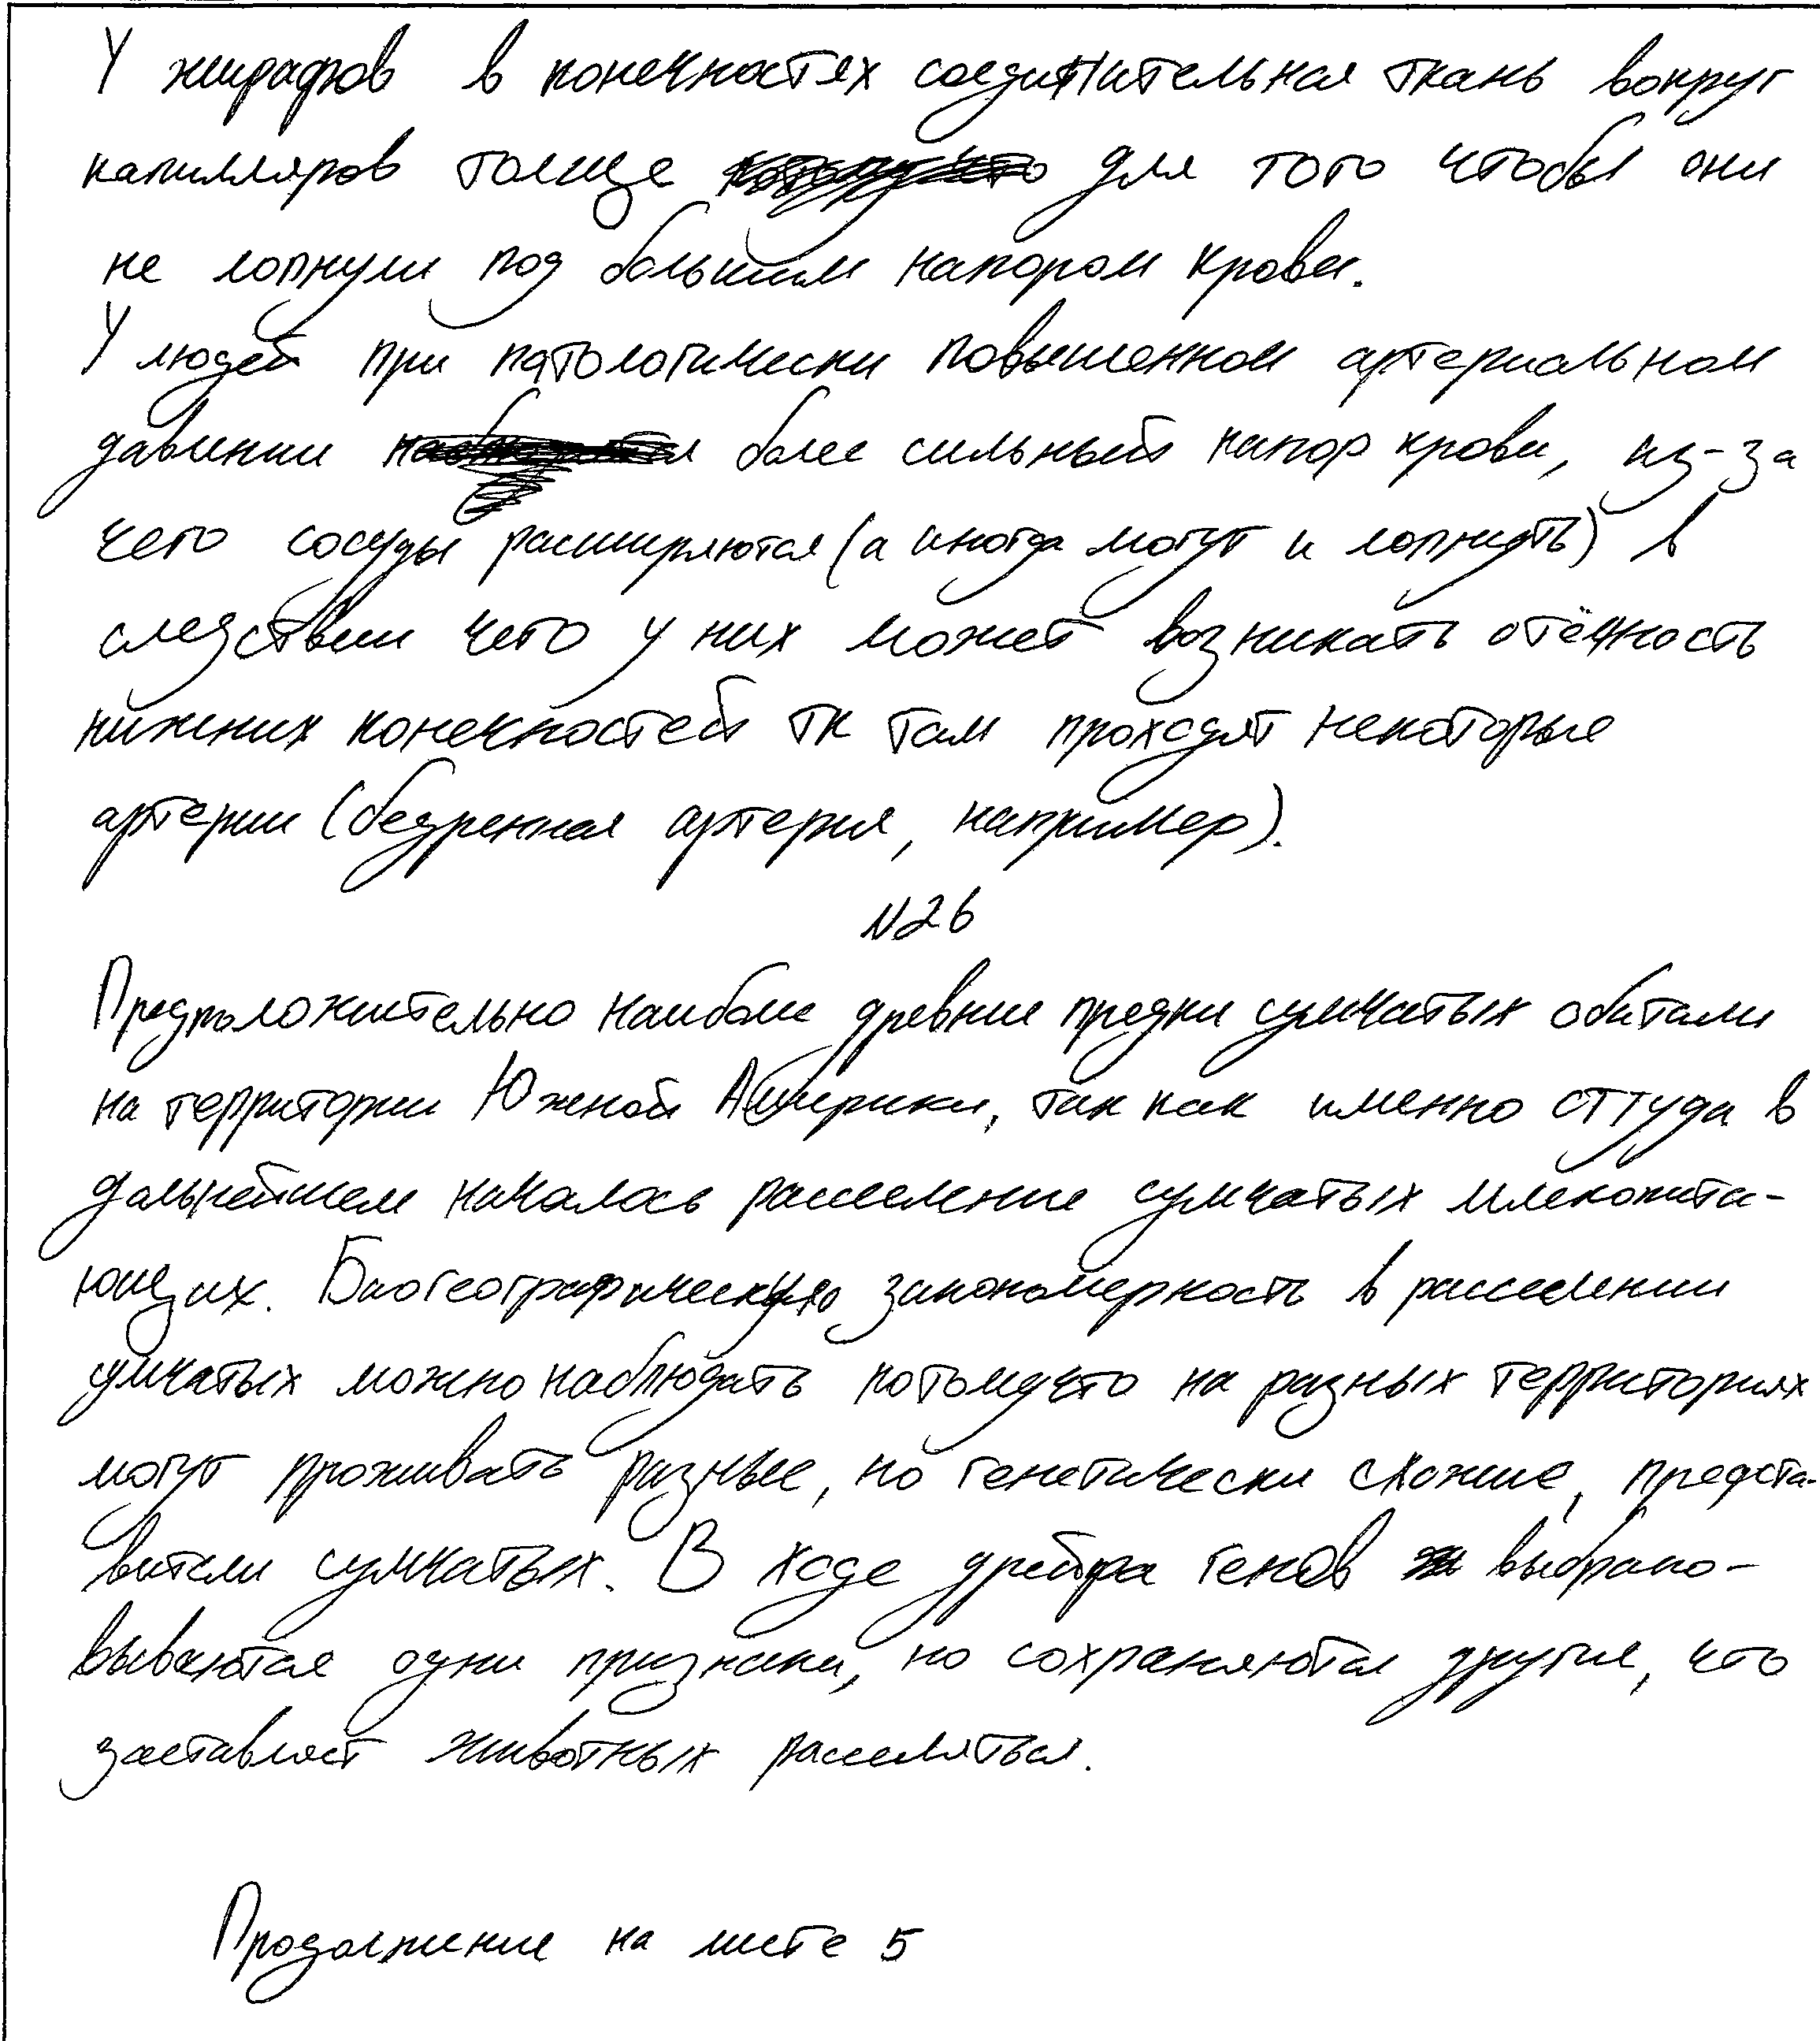 У жирафов в конечностях соединительная ткань вокруг
капилляров толще для того чтобы они
не лопнули под большим напором крови.
У людей при патологически повышенном артериальном
давлении более сильный напор крови, из-за
чего сосуды расширяются (а иногда могут и лопнуть) в
следствии чего у них может возникать отёчность
нижних конечностей тк там проходят некоторые
артерии (бедренная артерия, например).
№26
Предположительно наиболее древние предки сумчатых обитали
на территории Южной Америки, так как именно оттуда в
дальнейшем началось расселение сумчатых млекопита-
ющих. Биогеографическую закономерность в расселении
сумчатых можно наблюдать потомучто на разных территориях
могут проживать разные, но генетически схожие, предста-
вители сумчатых. В ходе дрейфа генов выбрако-
вываются одни признаки, но сохраняются другие, что
заставляет животных расселяться.
Продолжение на листе 5